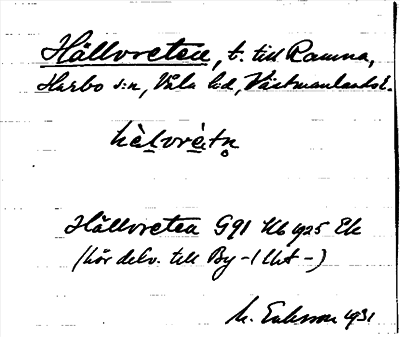 Hällvreten, t. till Ramna,
Harbo s:n, Våla hd, Västmanlands l.
hèlvrètn̥
Hällvreten G91 Hb 1925 Ek
(hör delv. till By
M. Eriksson 1931